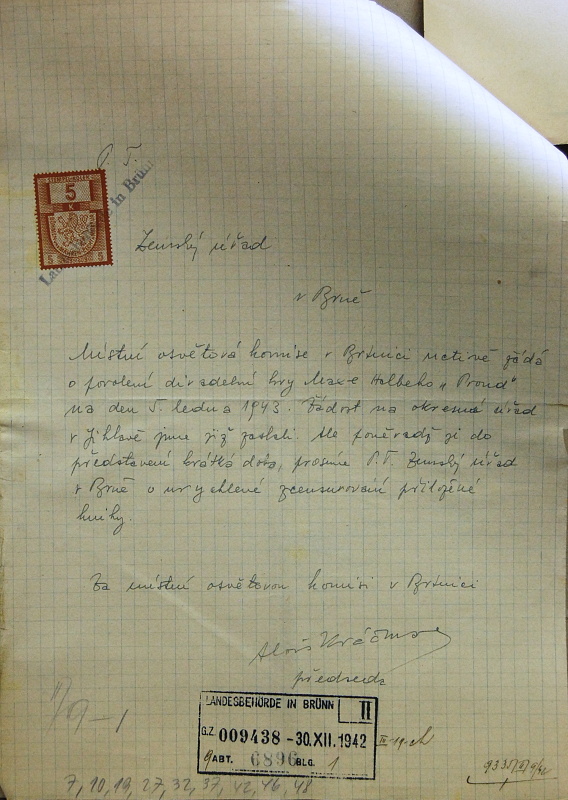 P. T.
5
K
5 5
Landesbehörde in Brünn
Zemský úřad
v Brně
Místní osvětová komise v Brtnici uctivě žádá
o povolení divadelní hry Maxe Halbeho „Proud"
na den 5. ledna 1943. Žádost na okresní úřad
v Jihlavě jsme již zaslali. Ale poněvadž je do
představení krátká doba, prosíme P.T. Zemský úřad
v Brně o urychlené zcensurování přiložené
knihy.
Za místní osvětovou komisi v Brtnici
Alois
předseda
LANDESBEHÖRDE IN BRÜNN II
G.Z. 009438 -30.XII.1942
ABT. 6896 BLG. 1
7, 10, 19, 27, 32, 37, 42, 46, 48